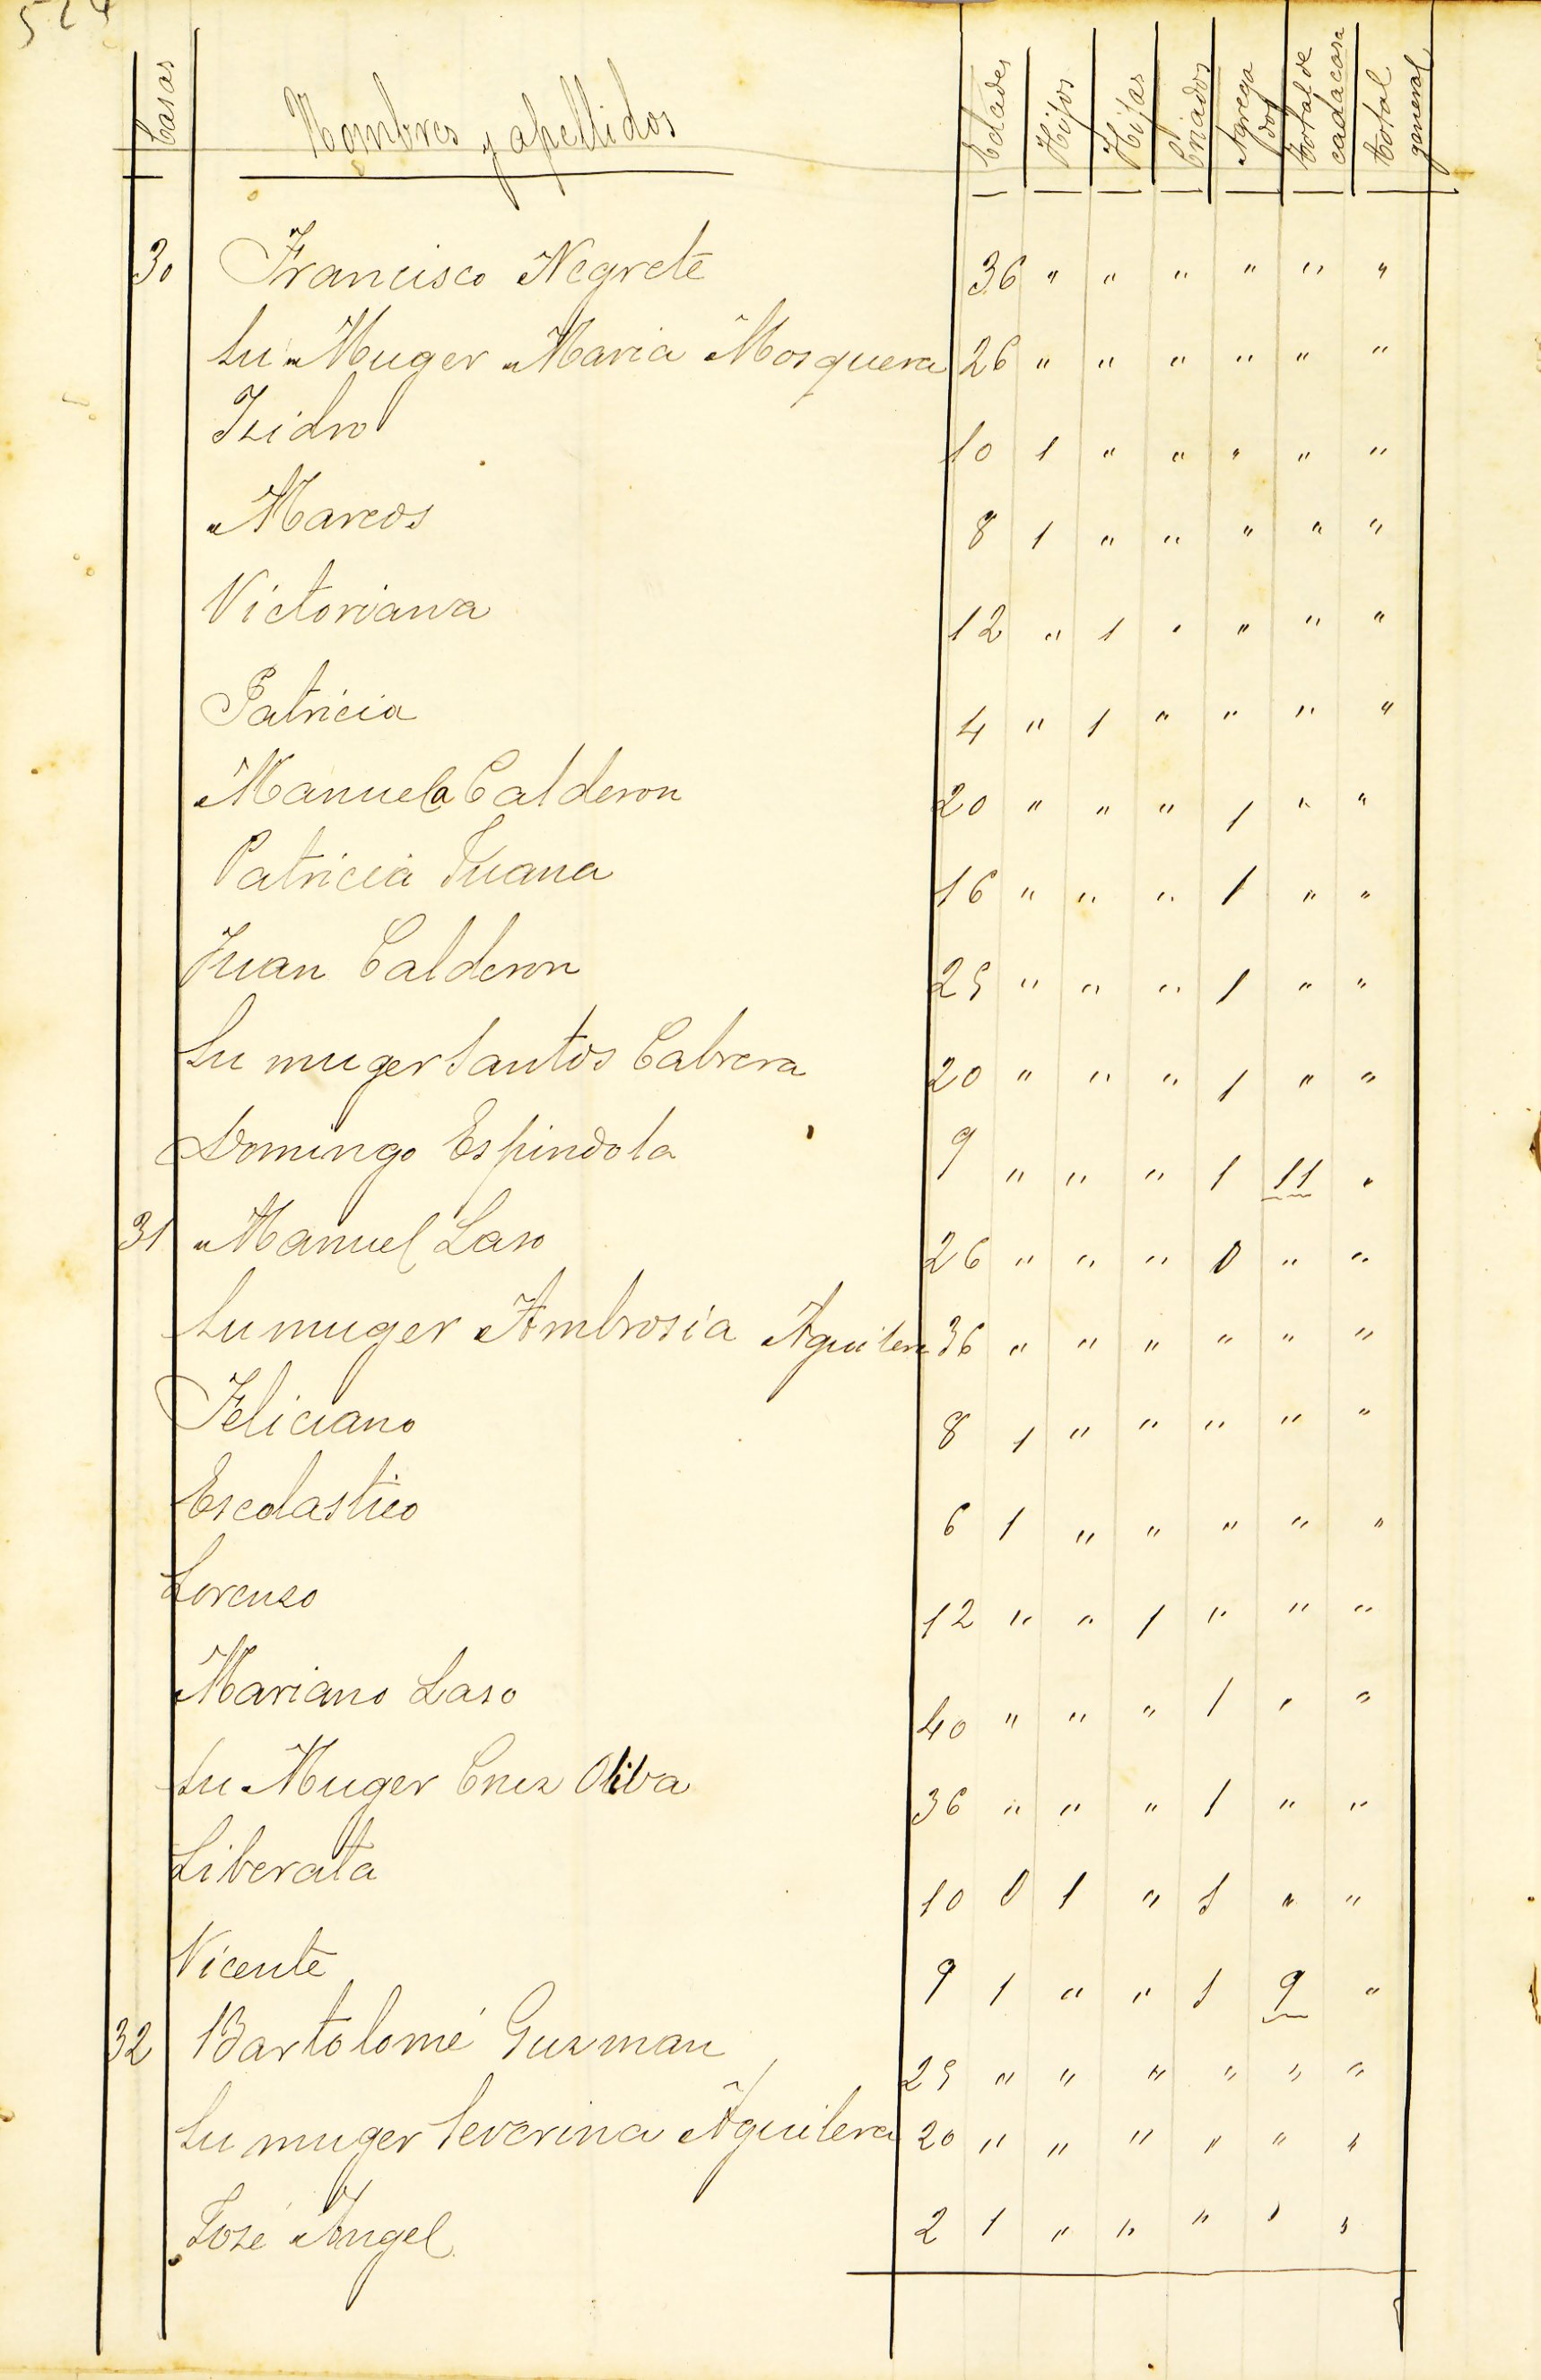 Casas | Nombres y apellidos | Edades | Hijos | Hijas | Criados | Agregados | total de cada casa | total general
30 Francisco Negrete 36 " " " " " "
Su Muger Maria Mosquera 26 " " " " " "
Izidro 10 1 " " " " "
Marcos 8 1 " " " " "
Victoriana 12 " 1 " " " "
Patricia 4 " 1 " " " "
Manuela Calderon 20 " " " 1 " "
Patricia Juana 16 " " " 1 " "
Juan Calderon 25 " " " 1 " "
Su muger Santos Cabrera 20 " " " 1 " "
Domingo Espindola 9 " " " 1 11 "
31 Manuel Laso 26 " " " 0 " "
Su muger Ambrosia Aguilera 36 " " " " " "
Feliciano 8 1 " " " " "
Escolastico 6 1 " " " " "
Lorenzo 12 " " 1 " " "
Mariano Laso 40 " " " 1 " "
Su Muger Cruz Oliva 36 " " " 1 " "
Liberata 10 0 1 " 1 " "
Vicente 9 1 " " 1 9 "
32 Bartolomé Guzman 25 " " " " " "
Su muger Severina Aguilera 20 " " " " " "
José Angel 2 1 " " " " "